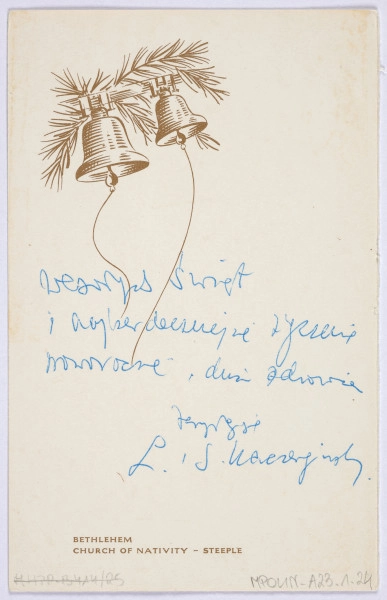 Wesołych Świąt
i najserdeczniejsze życzenia
noworoczne, dużo zdrowia
L. i S. Kaczerginsky
BETHLEHEM
CHURCH OF NATIVITY – STEEPLE
MPOLIN-A23.1.24